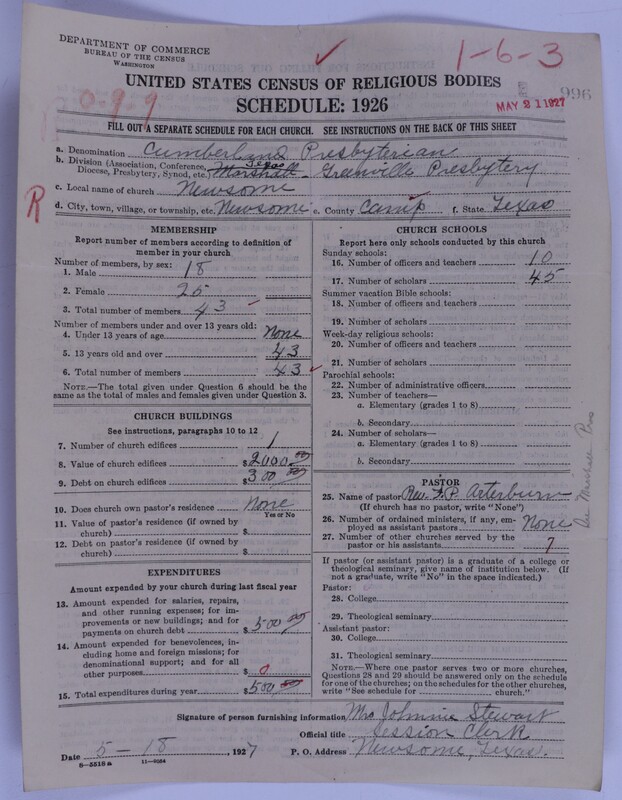 DEPARTMENT OF COMMERCE
BUREAU OF THE CENSUS
WASHINGTON
1-6-3
UNITED STATES CENSUS OF RELIGIOUS BODIES
SCHEDULE: 1926
0-9-9
MAY 21 1927
996
FILL OUT A SEPARATE SCHEDULE FOR EACH CHURCH. SEE INSTRUCTIONS ON THE BACK OF THIS SHEET
a. Denomination Cumberland Presbyterian
b. Division (Association, Conference, Texas
Diocese, Presbytery, Synod, etc.) Marshall - Greenville Presbytery
c. Local name of church Newsome
R
d. City, town, village, or township, etc. Newsome e. County Camp f. State Texas
MEMBERSHIP
Report number of members according to definition of
member in your church
Number of members by sex:
1. Male 18
2. Female 25
3. Total number of members 43
Number of members under and over 13 years old:
4. Under 13 years of age None
5. 13 years old and over 43
6. Total number of members 43
NOTE.—The total given under Question 6 should be
same as the total of males and females given under Question 3.
CHURCH BUILDINGS
See instructions, paragraphs 10 to 12
7. Number of church edifices 1
8. Value of church edifices $2000.00
9. Debt on church edifices $300.00
10. Does church own pastor's residence None
Yes or No
11. Value of pastor's residence (if owned by
church) $
12. Debt on pastor's residence (if owned by
church) $
EXPENDITURES
Amount expended by your church during last fiscal year
13. Amount expended for salaries, repairs,
and other running expenses; for im-
provements or new buildings; and for
payments on church debt $500.00
14. Amount expended for benevolences, in-
cluding home and foreign missions; for
denominational support; and for all
other purposes $ 0
15. Total expenditures during year $500.00
CHURCH SCHOOLS
Report here only schools conducted by this church
Sunday schools:
16. Number of officers and teachers 10
17. Number of scholars 45
Summer vacation Bible schools:
18. Number of officers and teachers
19. Number of scholars
Week-day religious schools:
20. Number of officers and teachers
21. Number of scholars
Parochial schools:
22. Number of administrative officers
23. Number of teachers—
a. Elementary (grades 1 to 8)
b. Secondary
24. Number of scholars—
a. Elementary (grades 1 to 8)
b. Secondary
PASTOR
25. Name of pastor Rev. F.P. Arterburn
(If church has no pastor, write "None")
26. Number of ordained ministers, if any, em-
ployed as assistant pastors None
27. Number of other churches served by the
pastor or his assistants 7
If pastor (or assistant pastor) is a graduate of a college or
theological seminary, give name of institution below. (If
not a graduate, write "No" in the space indicated.)
Pastor:
28. College
29. Theological seminary
Assistant pastor:
30. College
31. Theological seminary
NOTE.—Where one pastor serves two or more churches,
Questions 28 and 29 should be answered only on the schedule
for one of the churches; on the schedules for the other churches,
write "See schedule for church."
Marshall Pres
Signature of person furnishing information Mrs Johnnie Stewart
Official title Session Clerk
Date 5-18, 1927 P. O. Address Newsome, Texas.
8-5518a 11-9054